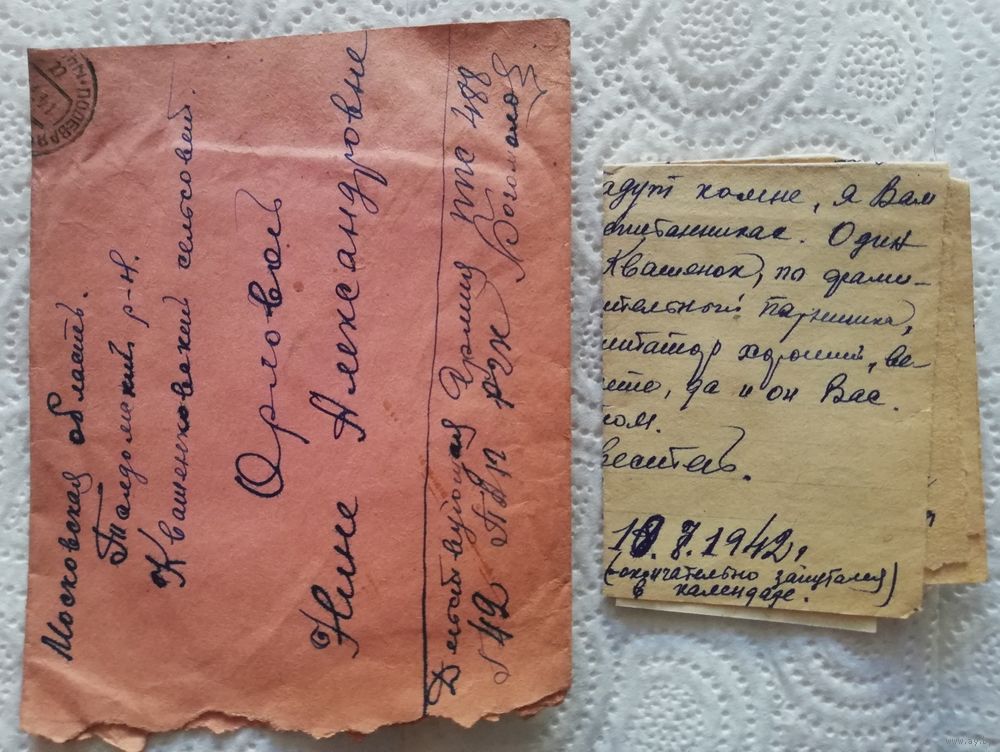 Московская область.
Талдомский р-н.
Квашенковский сельсовет.
Орловой
Нине Александровне
Действующая Армия ппс 488
№ 42 АЗ п
ПОЛЕВАЯ
адут комне, я Вам
спитанниках. Один
Квашенок, по драми-
ительный парнишка,
митатор хороший, ве-
те, да и он Вас.
ком.
веситель.
10.7.1942г.
(-окончательно запутался)
в календаре.
www.ay.by